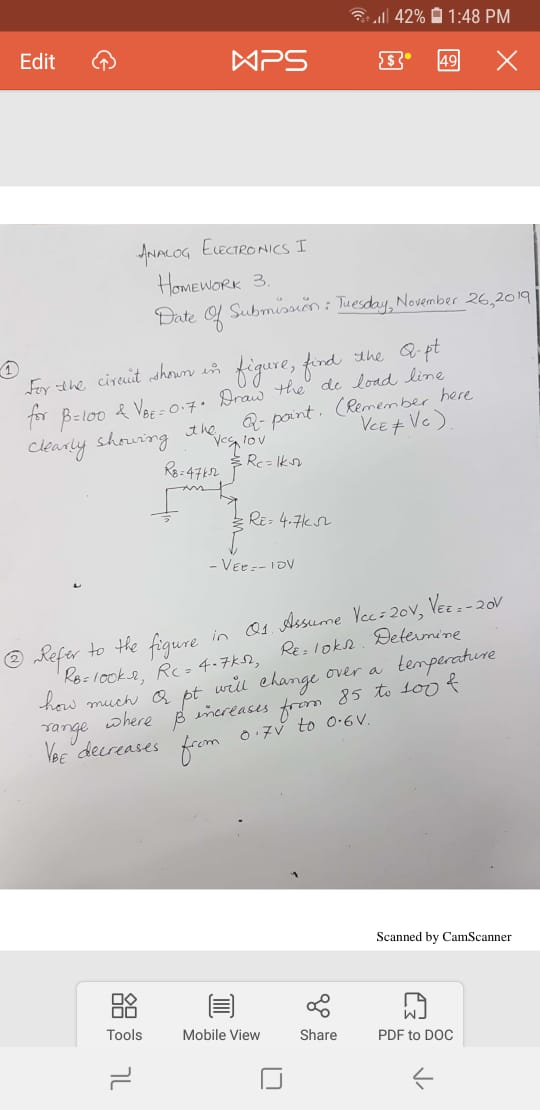 42% 1:48 PM
Edit WPS $ 49
ANALOG ELECTRONICS I
HOMEWORK 3.
Date Of Submission : Tuesday, November 26,2019
① For the circuit shown in figure, find the Q-pt
for β=100 & VBE = 0.7. Draw the dc load line
clearly showing the Q-point. (Remember here
VCE ≠ VC).
VCC 10V
RB=47kΩ RC=1kΩ
RE= 4.7kΩ
- VEE=-10V
② Refer to the figure in Q1. Assume VCC=20V, VEE=-20V
RB=100kΩ, RC=4.7kΩ, RE=10kΩ. Determine
how much Q pt will change over a temperature
range where β increases from 85 to 100 &
VBE decreases from 0.7V to 0.6V.
Scanned by CamScanner
Tools Mobile View Share PDF to DOC